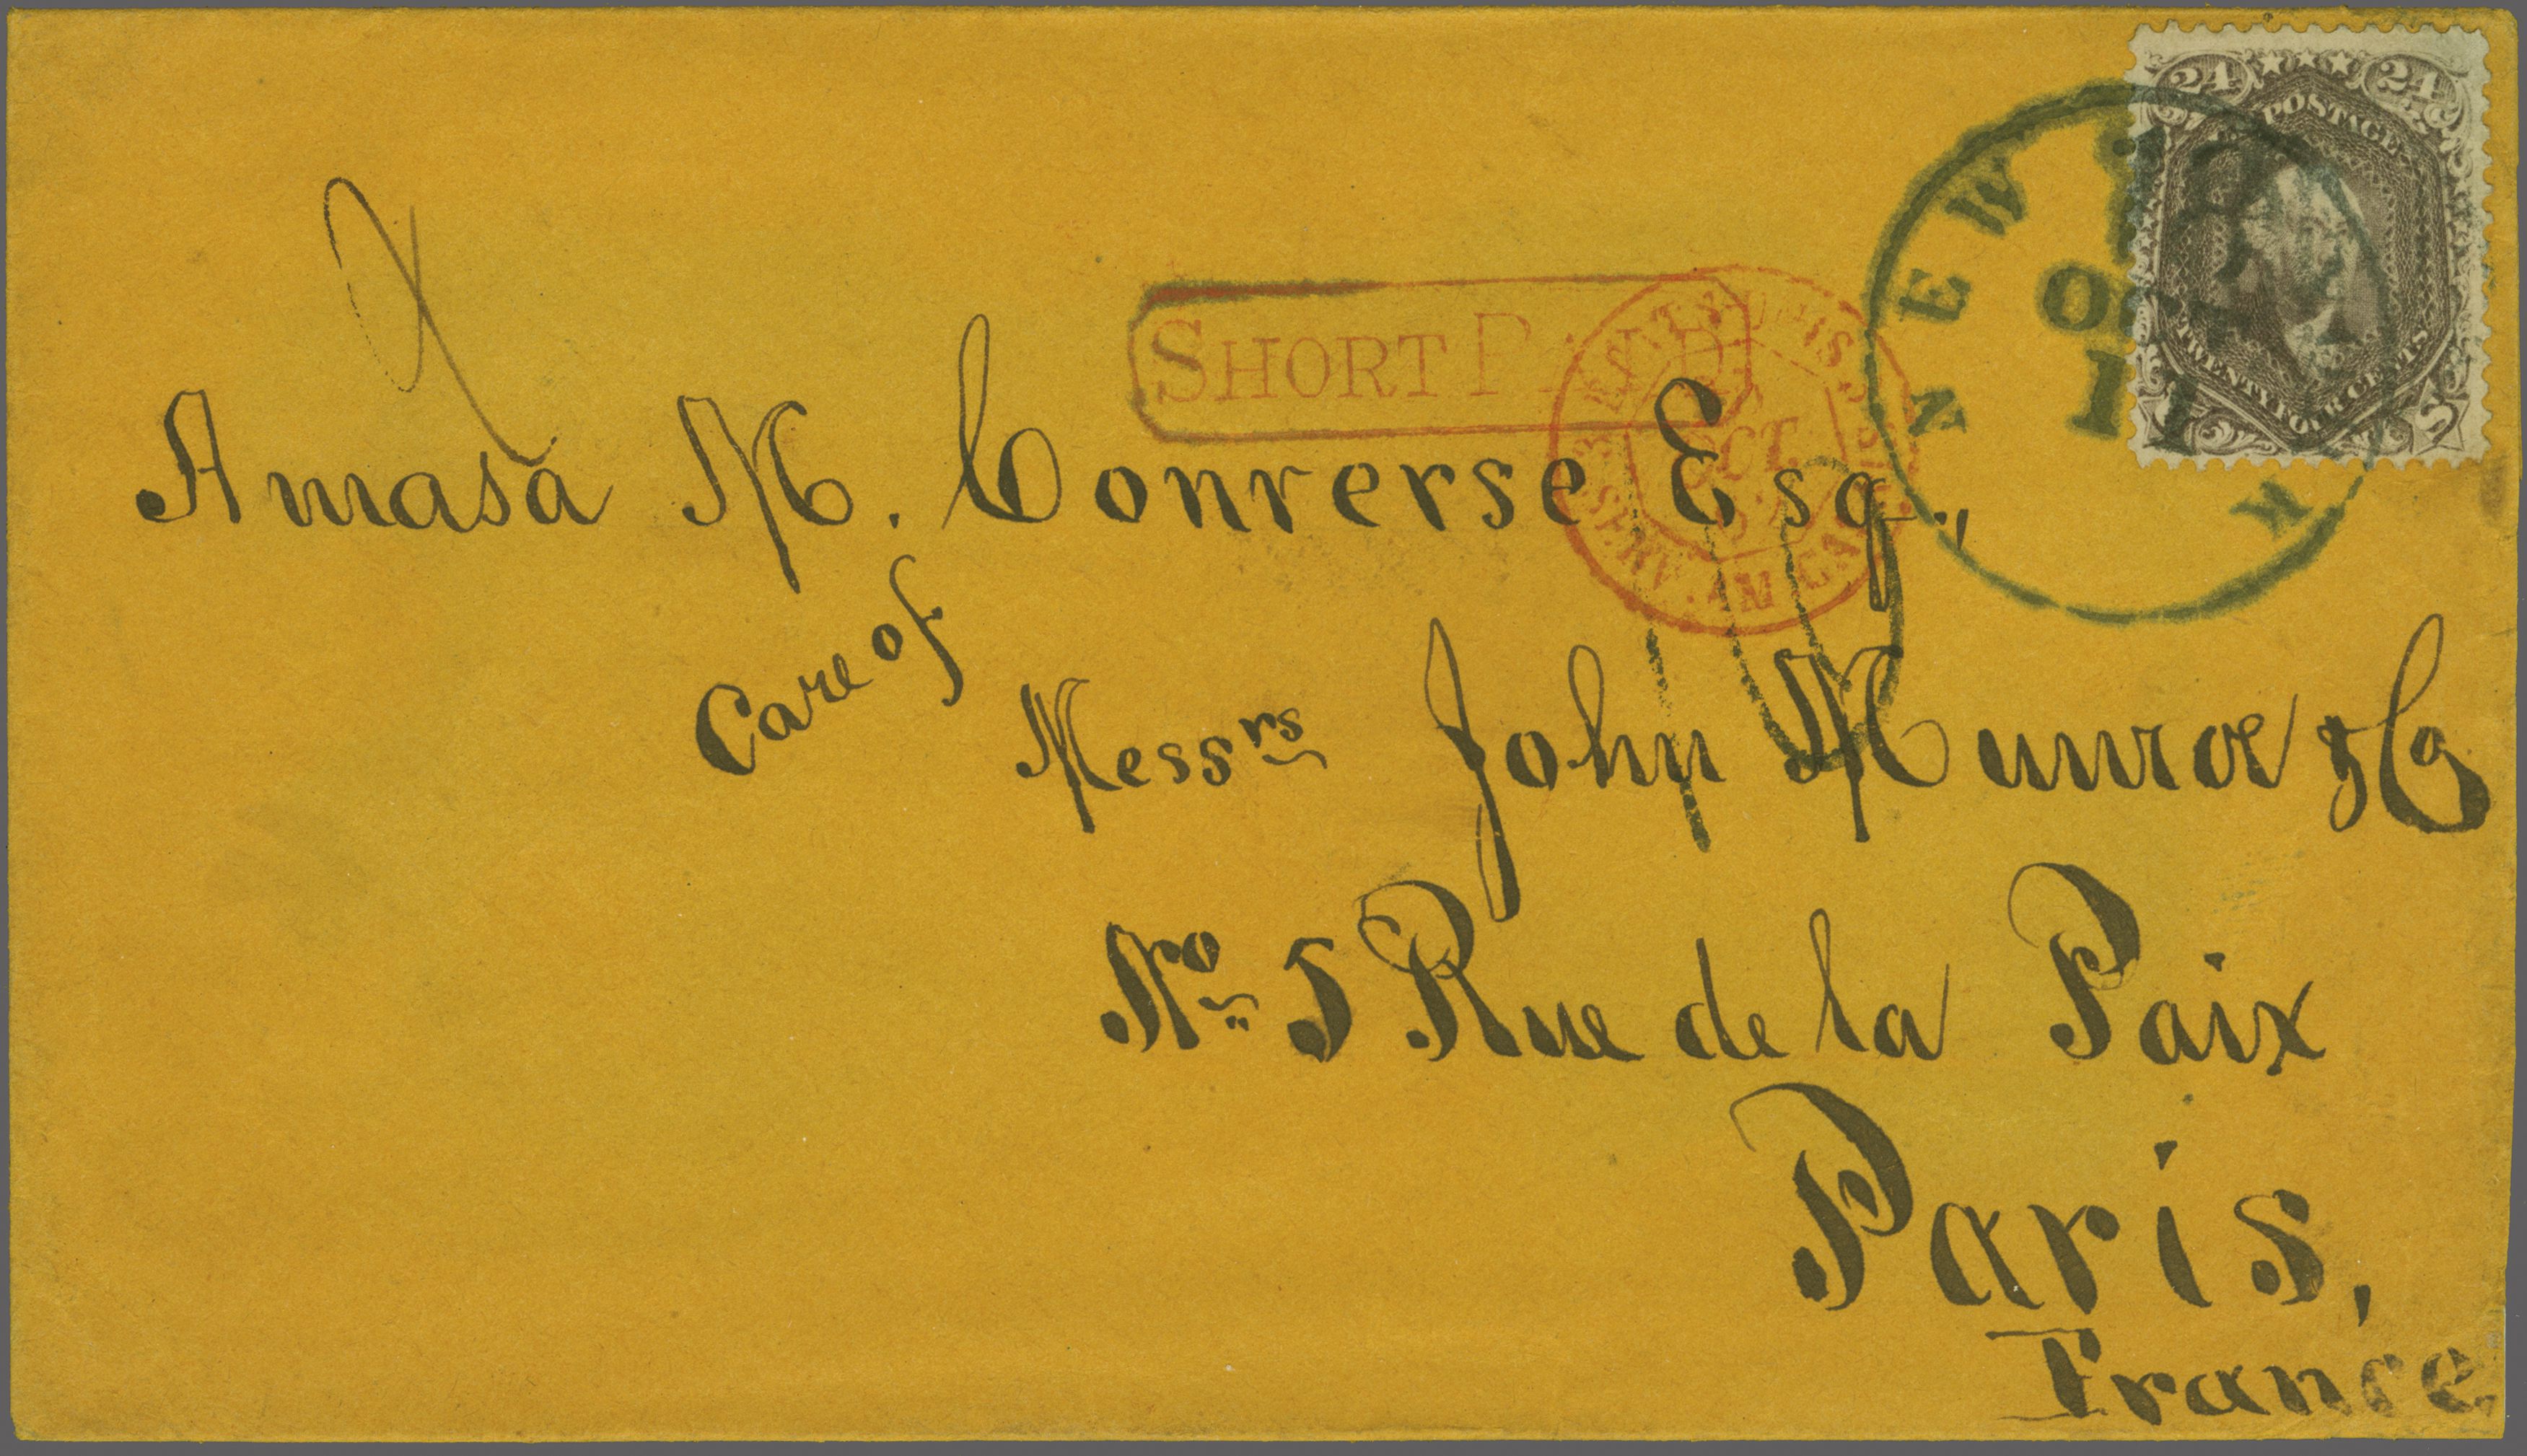 24 24
POSTAGE
TWENTY FOUR CENTS
U S
NEW YORK
OCT
11
SHORT PAID
OCT.
SERV. AM. CALAIS
Amasa M. Converse Esq.,
Care of
Messrs John Munroe & Co
No 5 Rue de la Paix
Paris,
France